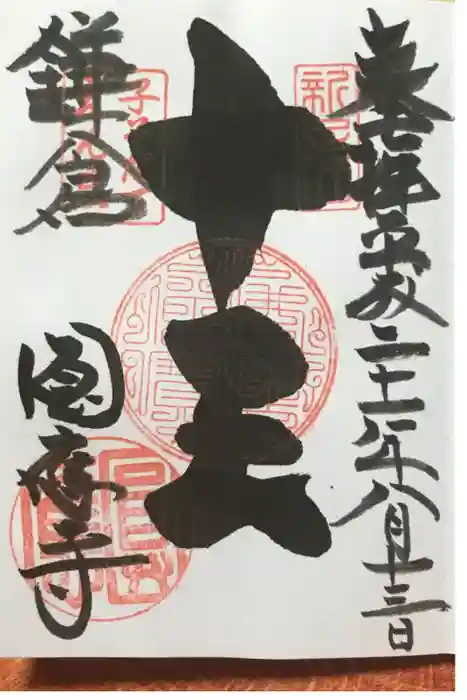 奉拝平成二十一年八月十三日
十王
鎌倉 圓應寺